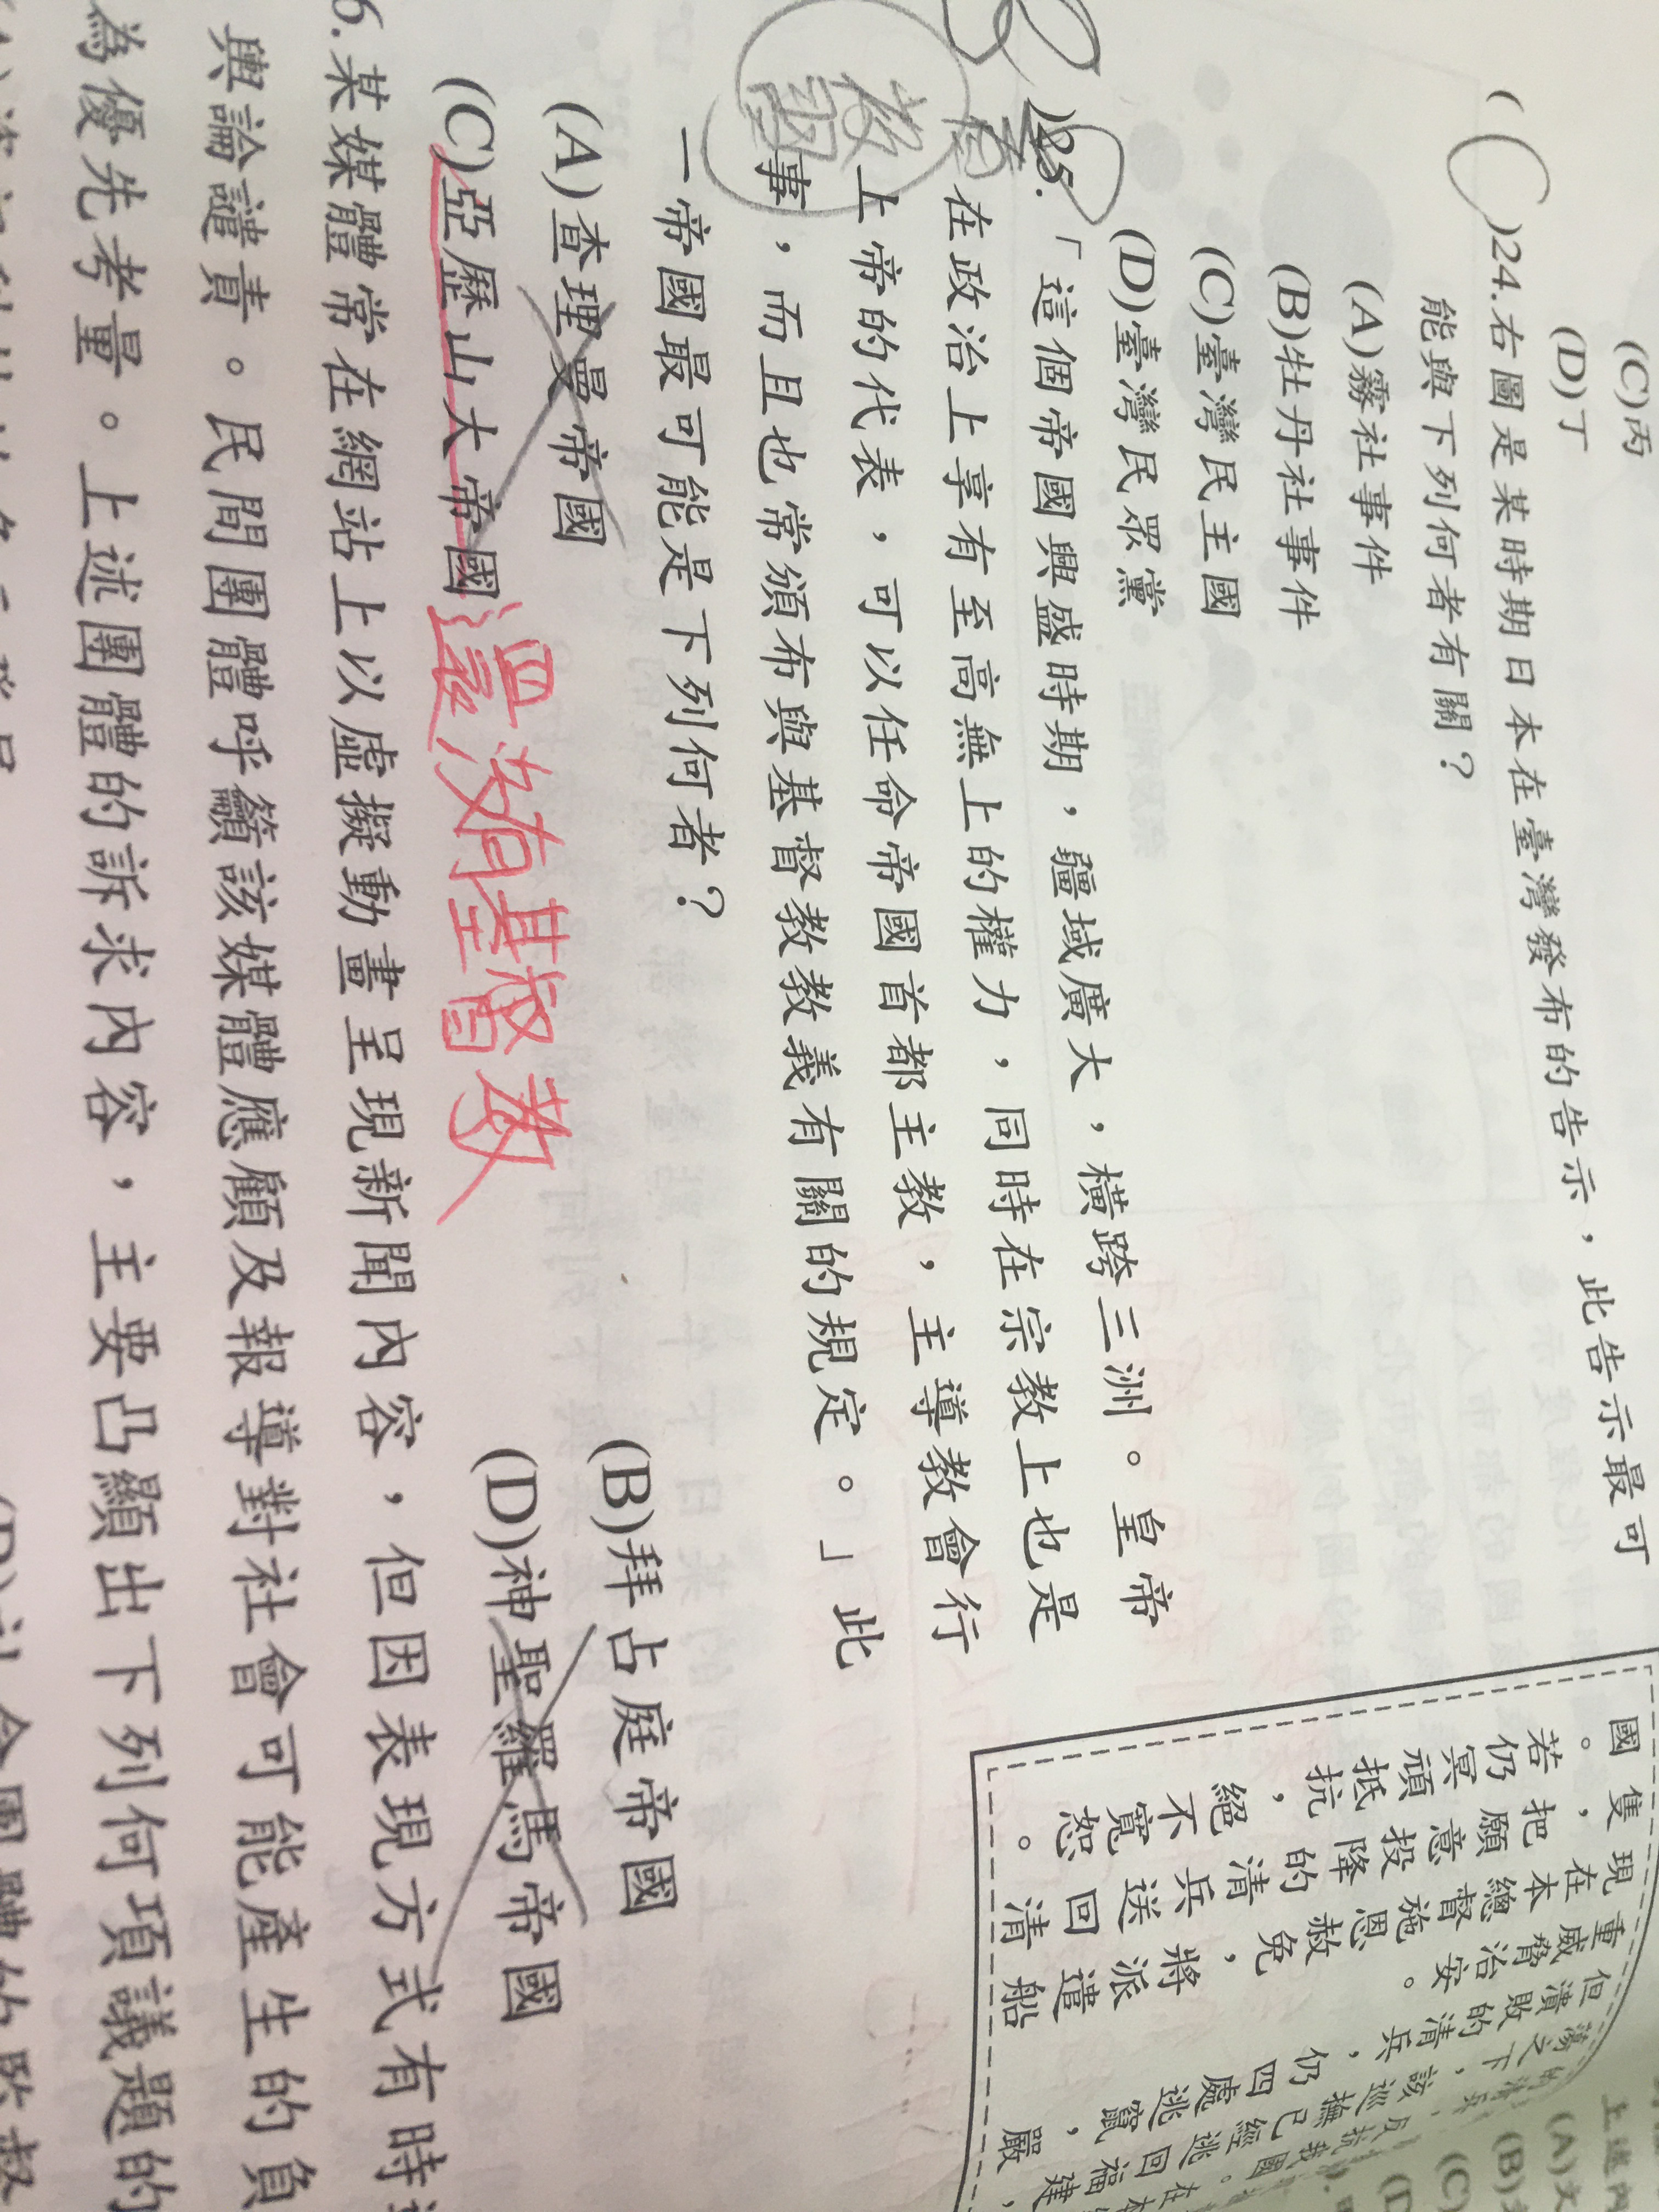 (C)丙
(D)丁
( C )24.右圖是某時期日本在臺灣發布的告示，此告示最可
能與下列何者有關？
(A)霧社事件
(B)牡丹社事件
(C)臺灣民主國
(D)臺灣民眾黨
B )25.「這個帝國興盛時期，疆域廣大，橫跨三洲。皇帝
在政治上享有至高無上的權力，同時在宗教上也是
上帝的代表，可以任命帝國首都主教，主導教會行
事，而且也常頒布與基督教教義有關的規定。」此
一帝國最可能是下列何者？
(A)查理曼帝國
(B)拜占庭帝國
(C)亞歷山大帝國
(D)神聖羅馬帝國
還沒有基督教
6.某媒體常在網站上以虛擬動畫呈現新聞內容，但因表現方式有時
輿論譴責。民間團體呼籲該媒體應顧及報導對社會可能產生的負
為優先考量。上述團體的訴求內容，主要凸顯出下列何項議題的
但潰敗的清兵，仍四處逃竄，嚴
重威脅治安。
現在本總督施恩赦免，將派遣船
隻，把願意投降的清兵送回清
國。若仍冥頑抵抗，絕不寬恕。
(A)文
(B)
(C)